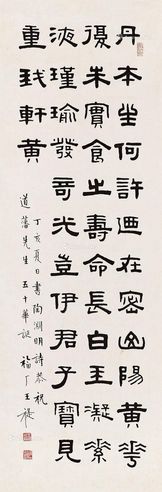 丹木坐何許迺在密山陽黃華
復朱實食之壽命長白玉凝素
液瑾瑜發奇光豈伊君子寶見
重我軒黃
丁亥夏日書陶淵明詩恭祝
道藩先生五十華誕 福厂王禔